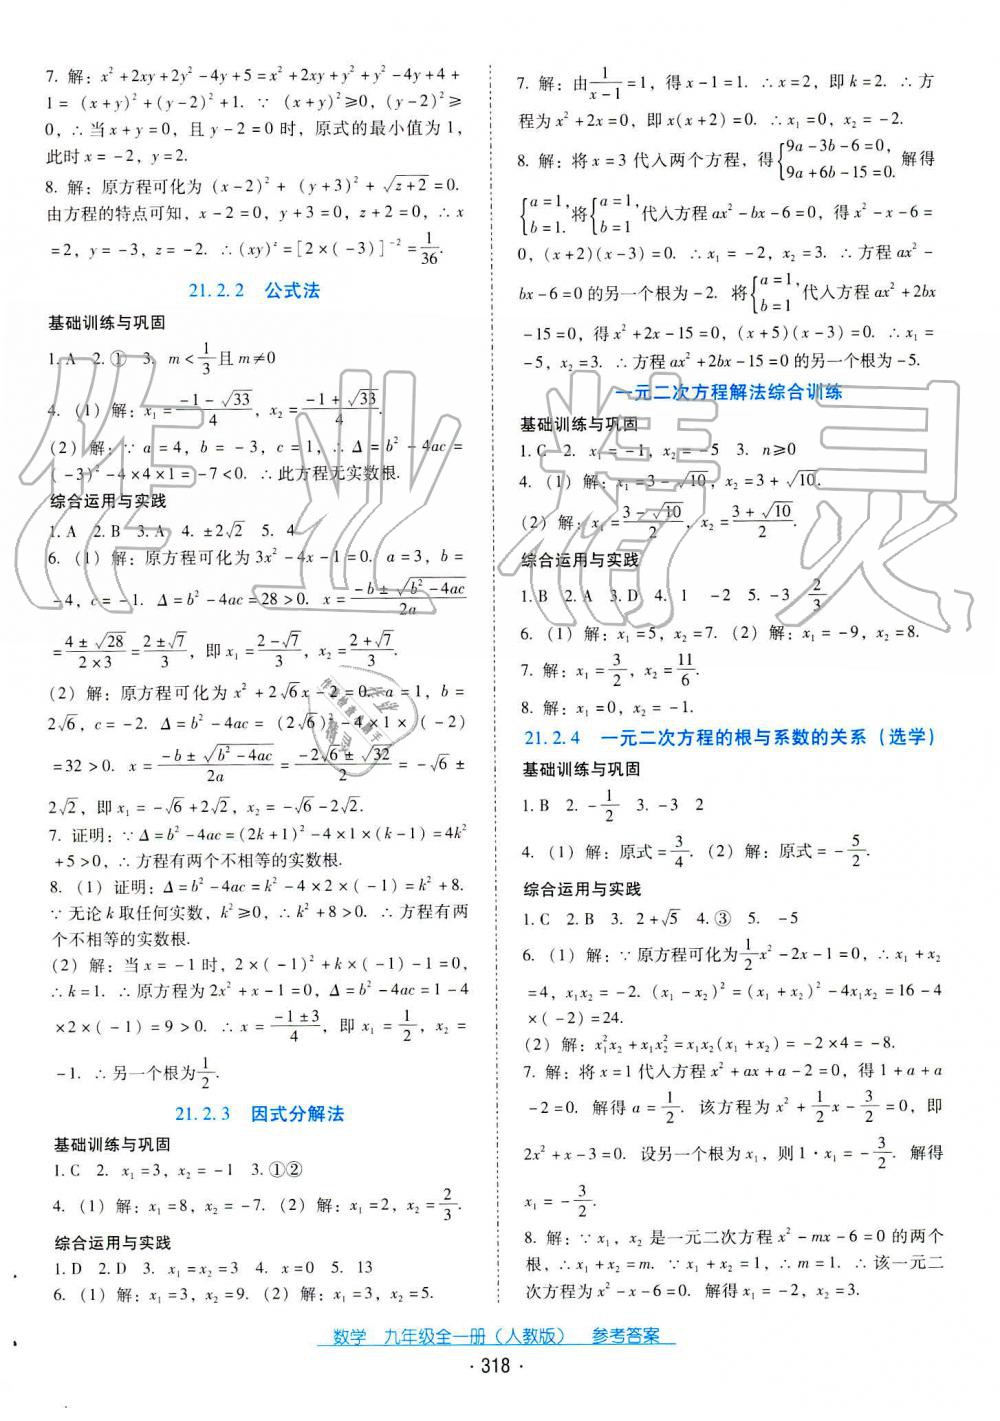 7. 解:x²+2xy+2y²-4y+5=x²+2xy+y²+y²-4y+4+
1=(x+y)²+(y-2)²+1. ∵(x+y)²≥0,(y-2)²≥
0,∴当x+y=0,且y-2=0时,原式的最小值为1,
此时x=-2,y=2.
8. 解:原方程可化为(x-2)²+(y+3)²+√(z+2)=0.
由方程的特点可知,x-2=0,y+3=0,z+2=0,∴x
=2,y=-3,z=-2. ∴(xy)ᶻ=[2×(-3)]⁻²=1/36.
21.2.2 公式法
基础训练与巩固
1. A 2. ① 3. m<1/3且m≠0
4. (1)解:x₁=(-1-√33)/4,x₂=(-1+√33)/4.
(2)解:∵a=4,b=-3,c=1,∴Δ=b²-4ac=
(-3)²-4×4×1=-7<0. ∴此方程无实数根.
综合运用与实践
1. A 2. B 3. A 4. ±2√2 5. 4
6. (1)解:原方程可化为3x²-4x-1=0. a=3,b=
-4,c=-1. Δ=b²-4ac=28>0. x=(-b±√(b²-4ac))/2a
=(4±√28)/(2×3)=(2±√7)/3,即x₁=(2-√7)/3,x₂=(2+√7)/3.
(2)解:原方程可化为x²+2√6x-2=0. a=1,b=
2√6,c=-2. Δ=b²-4ac=(2√6)²-4×1×(-2)
=32>0. x=(-b±√(b²-4ac))/2a=(-2√6±√32)/2=-√6±
2√2,即x₁=-√6+2√2,x₂=-√6-2√2.
7. 证明:∵Δ=b²-4ac=(2k+1)²-4×1×(k-1)=4k²
+5>0,∴方程有两个不相等的实数根.
8. (1)证明:Δ=b²-4ac=k²-4×2×(-1)=k²+8.
∵无论k取任何实数,k²≥0,∴k²+8>0. ∴方程有两
个不相等的实数根.
(2)解:当x=-1时,2×(-1)²+k×(-1)-1=0,
∴k=1. ∴原方程为2x²+x-1=0,∴Δ=b²-4ac=1-4
×2×(-1)=9>0. ∴x=(-1±3)/4,即x₁=1/2,x₂=
-1. ∴另一个根为1/2.
21.2.3 因式分解法
基础训练与巩固
1. C 2. x₁=3,x₂=-1 3. ①②
4. (1)解:x₁=8,x₂=-7. (2)解:x₁=4,x₂=2/3.
综合运用与实践
1. D 2. D 3. x₁=x₂=3 4. x=0 5. 13
6. (1)解:x₁=3,x₂=9. (2)解:x₁=3,x₂=5.
7. 解:由1/(x-1)=1,得x-1=1. ∴x=2,即k=2. ∴方
程为x²+2x=0,即x(x+2)=0. ∴x₁=0,x₂=-2.
8. 解:将x=3代入两个方程,得{9a-3b-6=0,9a+6b-15=0.解得
{a=1,b=1.将{a=1,b=1代入方程ax²-bx-6=0,得x²-x-6=
0,(x+2)(x-3)=0. ∴x₁=-2,x₂=3. ∴方程ax²-
bx-6=0的另一个根为-2. 将{a=1,b=1代入方程ax²+2bx
-15=0,得x²+2x-15=0,(x+5)(x-3)=0. ∴x₁=
-5,x₂=3. ∴方程ax²+2bx-15=0的另一个根为-5.
一元二次方程解法综合训练
基础训练与巩固
1. C 2. x₁=-1,x₂=-5 3. n≥0
4. (1)解:x₁=3-√10,x₂=3+√10.
(2)解:x₁=(3-√10)/2,x₂=(3+√10)/2.
综合运用与实践
1. B 2. A 3. D 4. 1 -2 5. -3 2/3
6. (1)解:x₁=5,x₂=7. (2)解:x₁=-9,x₂=8.
7. 解:x₁=3/2,x₂=11/6.
8. 解:x₁=0,x₂=-1.
21.2.4 一元二次方程的根与系数的关系(选学)
基础训练与巩固
1. B 2. -1/2 3. -3 2
4. (1)解:原式=3/4. (2)解:原式=-5/2.
综合运用与实践
1. C 2. B 3. 2+√5 4. ③ 5. -5
6. (1)解:∵原方程可化为1/2x²-2x-1=0,∴x₁+x₂
=4,x₁x₂=-2. (x₁-x₂)²=(x₁+x₂)²-4x₁x₂=16-4
×(-2)=24.
(2)解:x₁²x₂+x₁x₂²=x₁x₂(x₁+x₂)=-2×4=-8.
7. 解:将x=1代入方程x²+ax+a-2=0,得1+a+a
-2=0. 解得a=1/2. 该方程为x²+1/2x-3/2=0,即
2x²+x-3=0. 设另一个根为x₁,则1·x₁=-3/2. 解得
x₁=-3/2.
8. 解:∵x₁,x₂是一元二次方程x²-mx-6=0的两个
根,∴x₁+x₂=m. ∵x₁+x₂=1,∴m=1. ∴该一元二
次方程为x²-x-6=0. 解得x₁=-2,x₂=3.
数学 九年级全一册(人教版) 参考答案
·318·
作业精灵